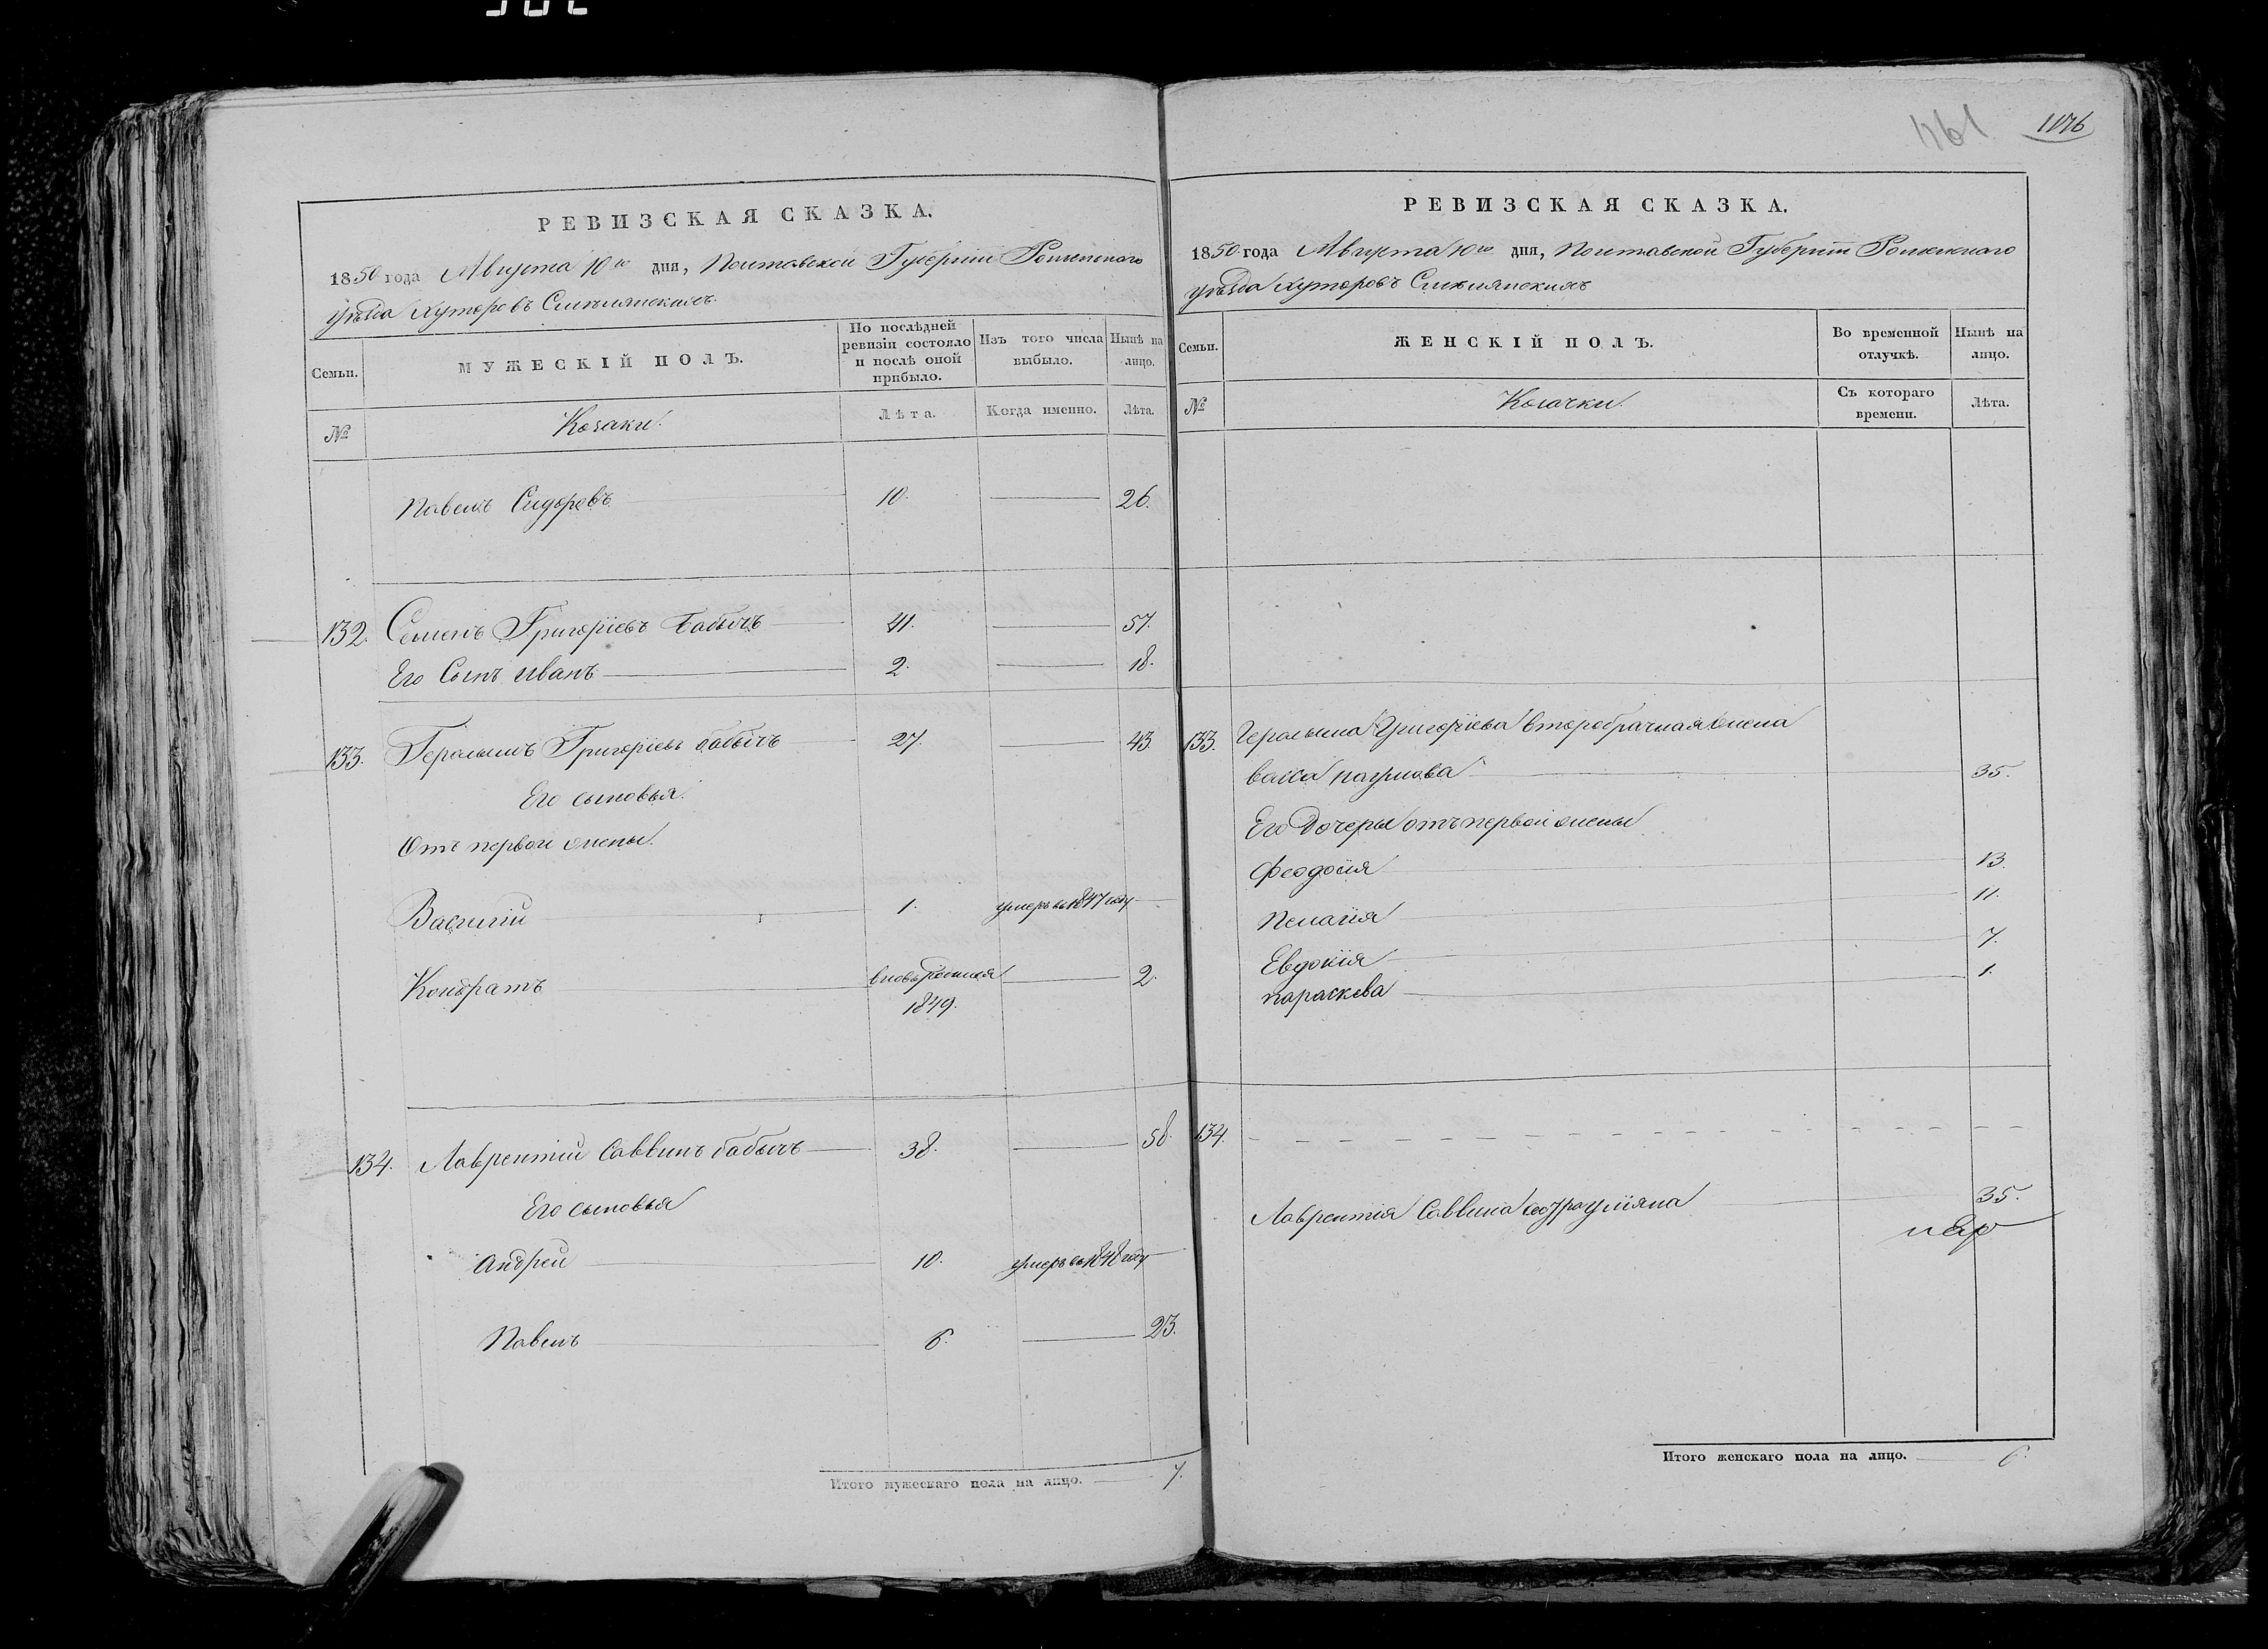 1176
РЕВИЗСКАЯ СКАЗКА.
1850 года Августа 10го дня, Полтавской Губерніи Роменского
уѣзда Хуторовъ
Семьи.
МУЖЕСКІЙ ПОЛЪ.
По послѣдней ревизіи состояло и послѣ оной прибыло.
Изъ того числа выбыло.
Нынѣ на лицо.
№
Козаки.
Лѣта.
Когда именно.
Лѣта.
Павелъ Сидоровъ 10. 26.
132. Семенъ Григоріевъ Бабычъ 41. 57.
Его Сынъ Иванъ 2. 18.
133. Герасымъ Григоріевъ бабычъ 27. 43.
Его сыновья.
Отъ первой жены.
Василій 1. умеръ въ 1847 году
Кондратъ 2.
1849.
134. Лаврентій Саввинъ бабычъ 38. 58.
Его сыновья
Андрей 10. умеръ въ 1848 году
Павелъ 6. 23.
Итого мужескаго пола на лицо. 7.
РЕВИЗСКАЯ СКАЗКА.
1850 года Августа 10го дня, Полтавской Губерніи Роменского
уѣзда Хуторовъ
Семьи.
ЖЕНСКІЙ ПОЛЪ.
Во временной отлучкѣ.
Нынѣ на лицо.
№
Козачки.
Съ котораго времени.
Лѣта.
133. Герасыма Григоріева второбрачная жена
Васса Наумова 35.
Его дочеры отъ первой жены
Феодосія 13.
Пелагія 11.
Евдокія 7.
параскева 1.
134.
Лаврентія Саввина 35.
Итого женскаго пола на лицо. 6.